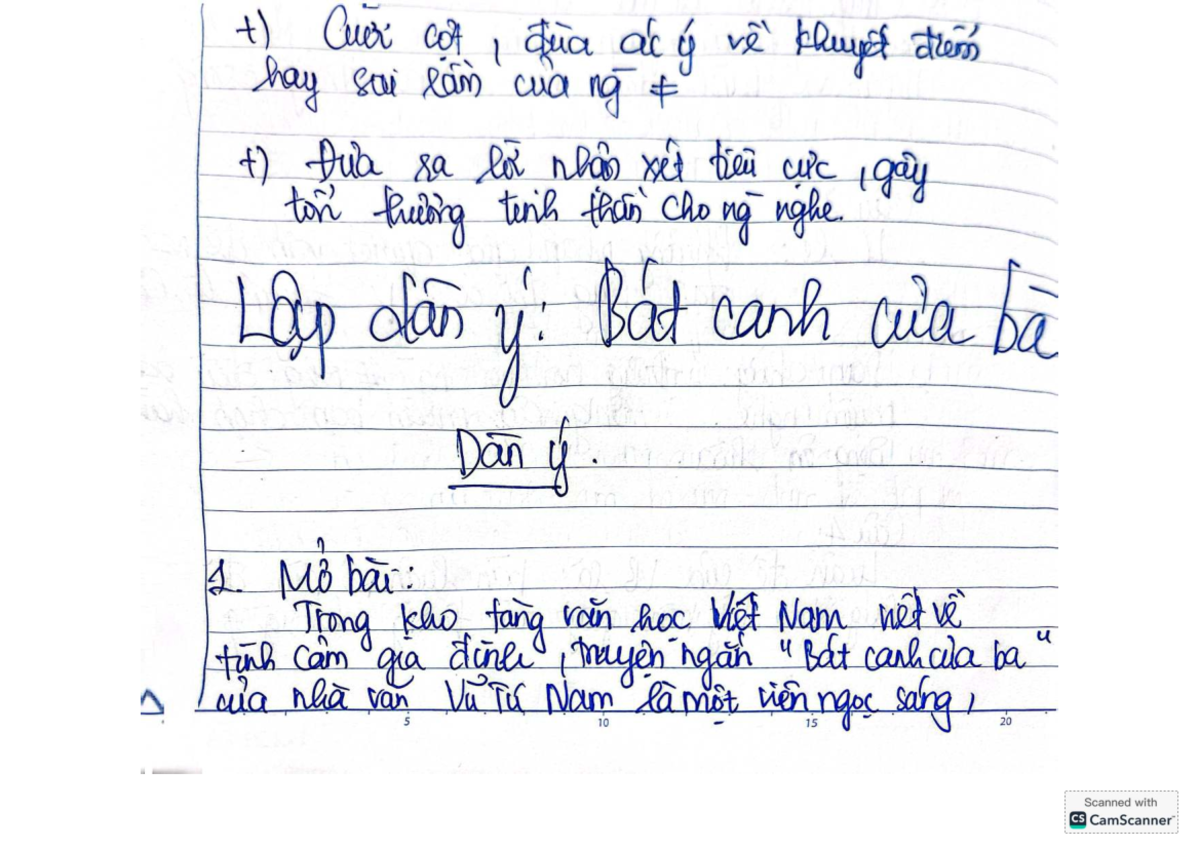 +) Cười cợt, đùa ác ý về khuyết điểm
hay sai lầm của ng ≠
+) Đưa ra lời nhận xét tiêu cực, gây
tổn thương tinh thần cho ng nghe.
Lập dàn ý: Bát canh của bà
Dàn ý.
1. Mở bài:
Trong kho tàng văn học Việt Nam viết về
tình cảm gia đình, truyện ngắn "Bát canh của bà"
của nhà văn Vũ Tú Nam là một viên ngọc sáng,
5 10 15 20
Scanned with
CS CamScanner